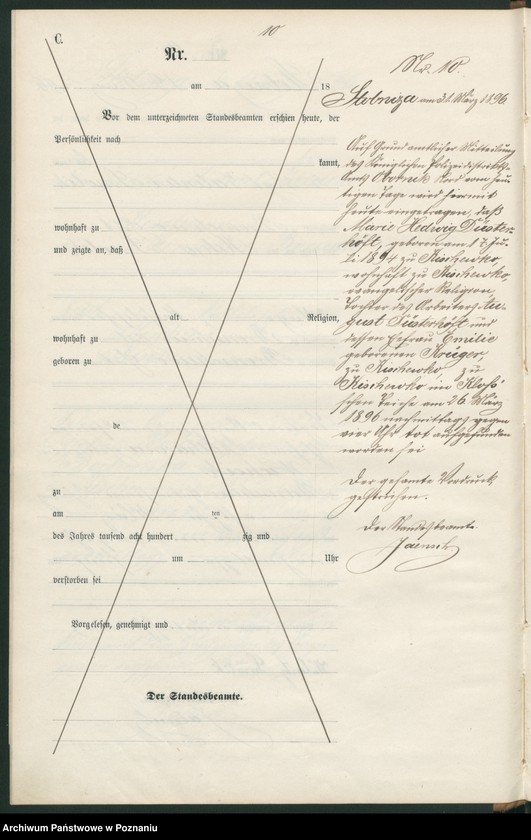 10
C.
Nr.
am 18
Vor dem unterzeichneten Standesbeamten erschien heute, der
Persönlichkeit nach
kannt,
wohnhaft zu
und zeigte an, daß
alt Religion,
wohnhaft zu
geboren zu
de
zu
am ten
des Jahres tausend acht hundert zig und
um Uhr
verstorben sei
Vorgelesen, genehmigt und
Der Standesbeamte.
Nr. 10.
Stobnica am 31. März 1896
Auf Grund amtlicher Mitteilung
des Königlichen Polizeidistrikts-
Amts Obornik Nord vom heu-
tigen Tage wird hiermit
heute eingetragen, daß
Marie Hedwig Düster-
höft, geboren am 17. Ju-
li 1894 zu Kischewko,
wohnhaft zu Kischewko,
evangelischer Religion,
Tochter des Arbeiters Au-
gust Düsterhöft und
dessen Ehefrau Emilie
geborenen Krüger,
zu Kischewko zu
Kischewko im
schen Teiche am 26. März
1896 nachmittags gegen
vier Uhr tot aufgefunden
worden sei
Der gesamte Vordruck
gestrichen.
Der Standesbeamte.
Archiwum Państwowe w Poznaniu